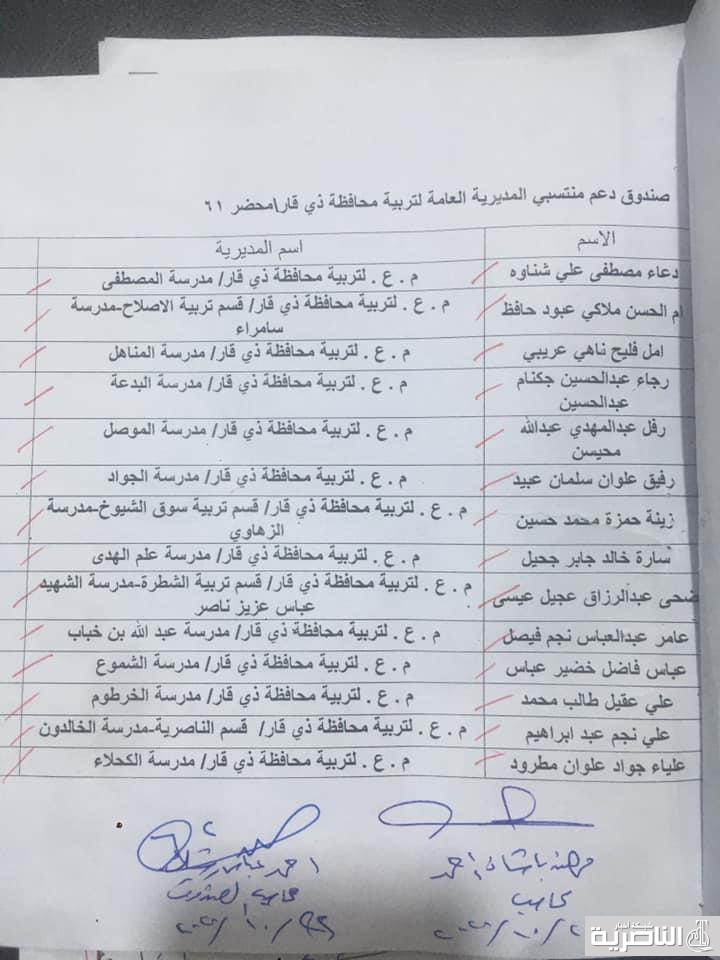 صندوق دعم منتسبي المديرية العامة لتربية محافظة ذي قار/محضر ٦١
الاسم
اسم المديرية
دعاء مصطفى علي شناوه
م . ع . لتربية محافظة ذي قار/ مدرسة المصطفى
ام الحسن ملاكي عبود حافظ
م . ع . لتربية محافظة ذي قار/ قسم تربية الاصلاح-مدرسة
سامراء
امل فليح ناهي عريبي
م . ع . لتربية محافظة ذي قار/ مدرسة المناهل
رجاء عبدالحسين جكنام
عبدالحسين
م . ع . لتربية محافظة ذي قار/ مدرسة البدعة
رفل عبدالمهدي عبدالله
محيسن
م . ع . لتربية محافظة ذي قار/ مدرسة الموصل
رفيق علوان سلمان عبيد
م . ع . لتربية محافظة ذي قار/ مدرسة الجواد
زينة حمزة محمد حسين
م . ع . لتربية محافظة ذي قار/ قسم تربية سوق الشيوخ-مدرسة
الزهاوي
سارة خالد جابر جحيل
م . ع . لتربية محافظة ذي قار/ مدرسة علم الهدى
ضحى عبدالرزاق عجيل عيسى
م . ع . لتربية محافظة ذي قار/ قسم تربية الشطرة-مدرسة الشهيد
عباس عزيز ناصر
عامر عبدالعباس نجم فيصل
م . ع . لتربية محافظة ذي قار/ مدرسة عبد الله بن خباب
عباس فاضل خضير عباس
م . ع . لتربية محافظة ذي قار/ مدرسة الشموع
علي عقيل طالب محمد
م . ع . لتربية محافظة ذي قار/ مدرسة الخرطوم
علي نجم عبد ابراهيم
م . ع . لتربية محافظة ذي قار/ قسم الناصرية-مدرسة الخالدون
علياء جواد علوان مطرود
م . ع . لتربية محافظة ذي قار/ مدرسة الكحلاء
احمد
محاسب
احمد
محاسب الصندوق
شبكة اخبار
الناصرية